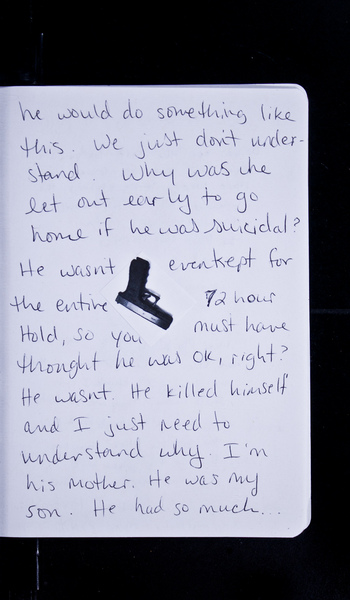 he would do something like
this. We just don't under-
stand. Why was he
let out early to go
home if he was suicidal?
He wasnt even kept for
the entire 72 hour
Hold, so you must have
thought he was OK, right?
He wasnt. He killed himself
and I just need to
understand why. I'm
his mother. He was my
son. He had so much...